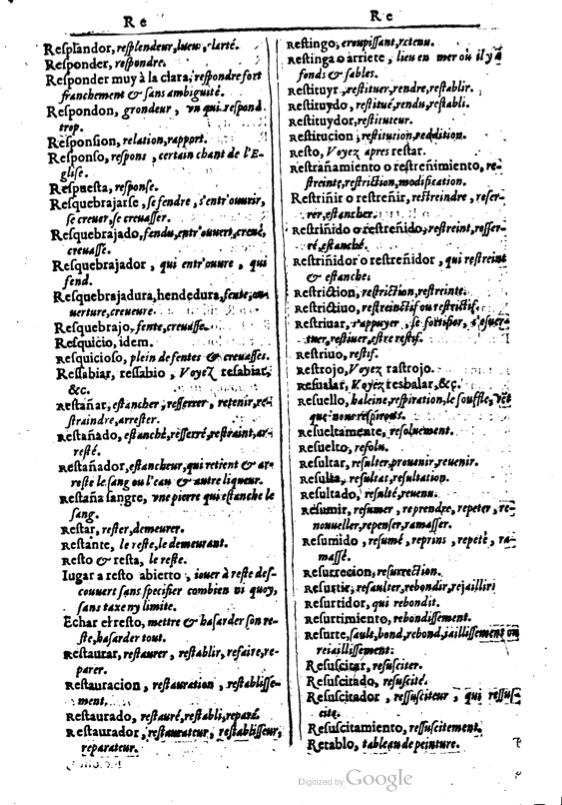 Re
Reſplandor, reſplendeur, lueur, clarté.
Reſponder, reſpondre.
Reſponder muy à la clara, reſpondre fort
franchement & ſans ambiguité.
Reſpondon, grondeur, vn qui reſpond
trop.
Reſponſion, relation, rapport.
Reſponſo, reſpons, certain chant de l'E-
gliſe.
Reſpueſta, reſponſe.
Reſquebrajarſe, ſe fendre, s'entr'ouurir,
ſe creuer, ſe creuaſſer.
Reſquebrajado, fendu, entr'ouuert, creué,
creuaſſé.
Reſquebrajador, qui entr'ouure, qui
fend.
Reſquebrajadura, hendedura, fente, ou-
uerture, creueure.
Reſquebrajo, fente, creuaſſe.
Reſquicio, idem.
Reſquicioſo, plein de fentes & creuaſſes.
Reſſabiar, reſſabio, Voyez reſabiar,
&c.
Reſtañar, eſtancher, reſſerrer, retenir, re-
ſtraindre, arreſter.
Reſtañado, eſtanché, reſſerré, reſtraint, ar-
reſté.
Reſtañador, eſtancheur, qui retient & ar-
reſte le ſang ou l'eau & autre liqueur.
Reſtaña ſangre, vne pierre qui eſtanche le
ſang.
Reſtar, reſter, demeurer.
Reſtante, le reſte, le demeurant.
Reſto & reſta, le reſte.
Iugar a reſto abierto, iouer à reſte deſ-
couuert ſans ſpecifier combien ni quoy,
ſans taxe ny limite.
Echar el reſto, mettre & haſarder ſon re-
ſte, haſarder tout.
Reſtaurar, reſtaurer, reſtablir, refaire, re-
parer.
Reſtauracion, reſtauration, reſtabliſſe-
ment.
Reſtaurado, reſtauré, reſtabli, reparé.
Reſtaurador, reſtaurateur, reſtabliſſeur,
reparateur.
Re
Reſtingo, croupiſſant, retenu.
Reſtinga o arriete, lieu en mer où il y a
fonds & ſables.
Reſtituyr, reſtituer, rendre, reſtablir.
Reſtituydo, reſtitué, rendu, reſtabli.
Reſtituydor, reſtituteur.
Reſtitucion, reſtitution, reddition.
Reſto, Voyez apres reſtar.
Reſtrañamiento o reſtreñimiento, re-
ſtreinte, reſtriction, modification.
Reſtriñir o reſtreñir, reſtreindre, reſer-
rer, eſtancher.
Reſtriñido o reſtreñido, reſtreint, reſſer-
ré, eſtanché.
Reſtriñidor o reſtreñidor, qui reſtreint
& eſtanche.
Reſtriction, reſtriction, reſtreinte.
Reſtrictiuo, reſtreinctif ou reſtrictif.
Reſtriuar, s'appuyer, ſe fortifier, s'eſuer-
tuer, reſtiuer, eſtre reſtif.
Reſtriuo, reſtif.
Reſtrojo, Voyez raſtrojo.
Reſualar, Voyez resbalar, &c.
Reſuello, haleine, reſpiration, le ſouffle, vẽt
que nous reſpirons.
Reſueltamente, reſoluement.
Reſuelto, reſolu.
Reſultar, reſulter, prouenir, reuenir.
Reſulta, reſultat, reſultation.
Reſultado, reſulté, reuenu.
Reſumir, reſumer, reprendre, repeter, re-
nouueller, repenſer, ramaſſer.
Reſumido, reſumé, reprins, repeté, ra-
maſſé.
Reſurrecion, reſurrection.
Reſurtir, reſaulter, rebondir, rejaillir.
Reſurtidor, qui rebondit.
Reſurtimiento, rebondiſſement.
Reſurte, ſault, bond, rebond, iailliſſement ou
reiailliſſement.
Reſuſcitar, reſuſciter.
Reſuſcitado, reſuſcité.
Reſuſcitador, reſſuſciteur, qui reſſuſ-
cite.
Reſuſcitamiento, reſſuſcitement.
Retablo, tableau de peinture.
Digitized by Google